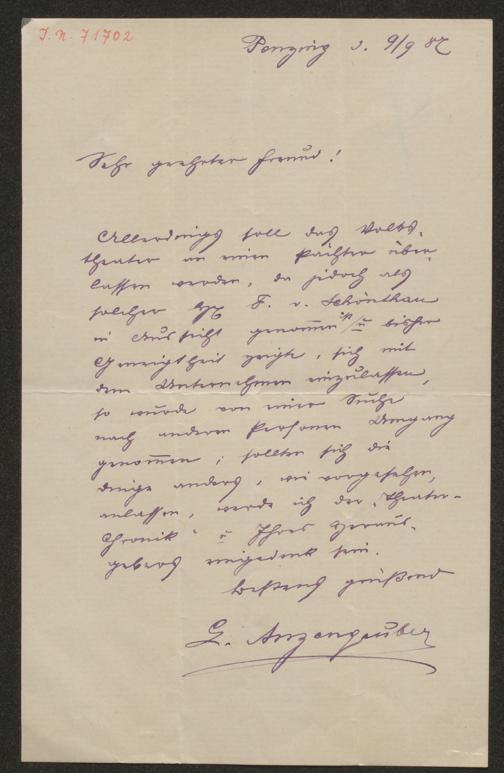 I. N. 71702
Penzing d. 9/9 87
Sehr geehrter Freund!
Allerdings soll das Volks-
theater an einen Pächter über-
lassen werden, da jedoch als
solcher F. v. Schönthan
in Aussicht genommen ist u bisher
Geneigtheit zeigte, sich mit
dem Unternehmen einzulassen,
so wurde von einer Suche
nach anderen Personen Umgang
genommen; sollten sich die
Dinge anders, wie vorgesehen,
anlassen, werde ich der „Theater-
Chronik" u Ihres Heraus-
gebers eingedenk sein.
Bestens grüßend
L. Anzengruber